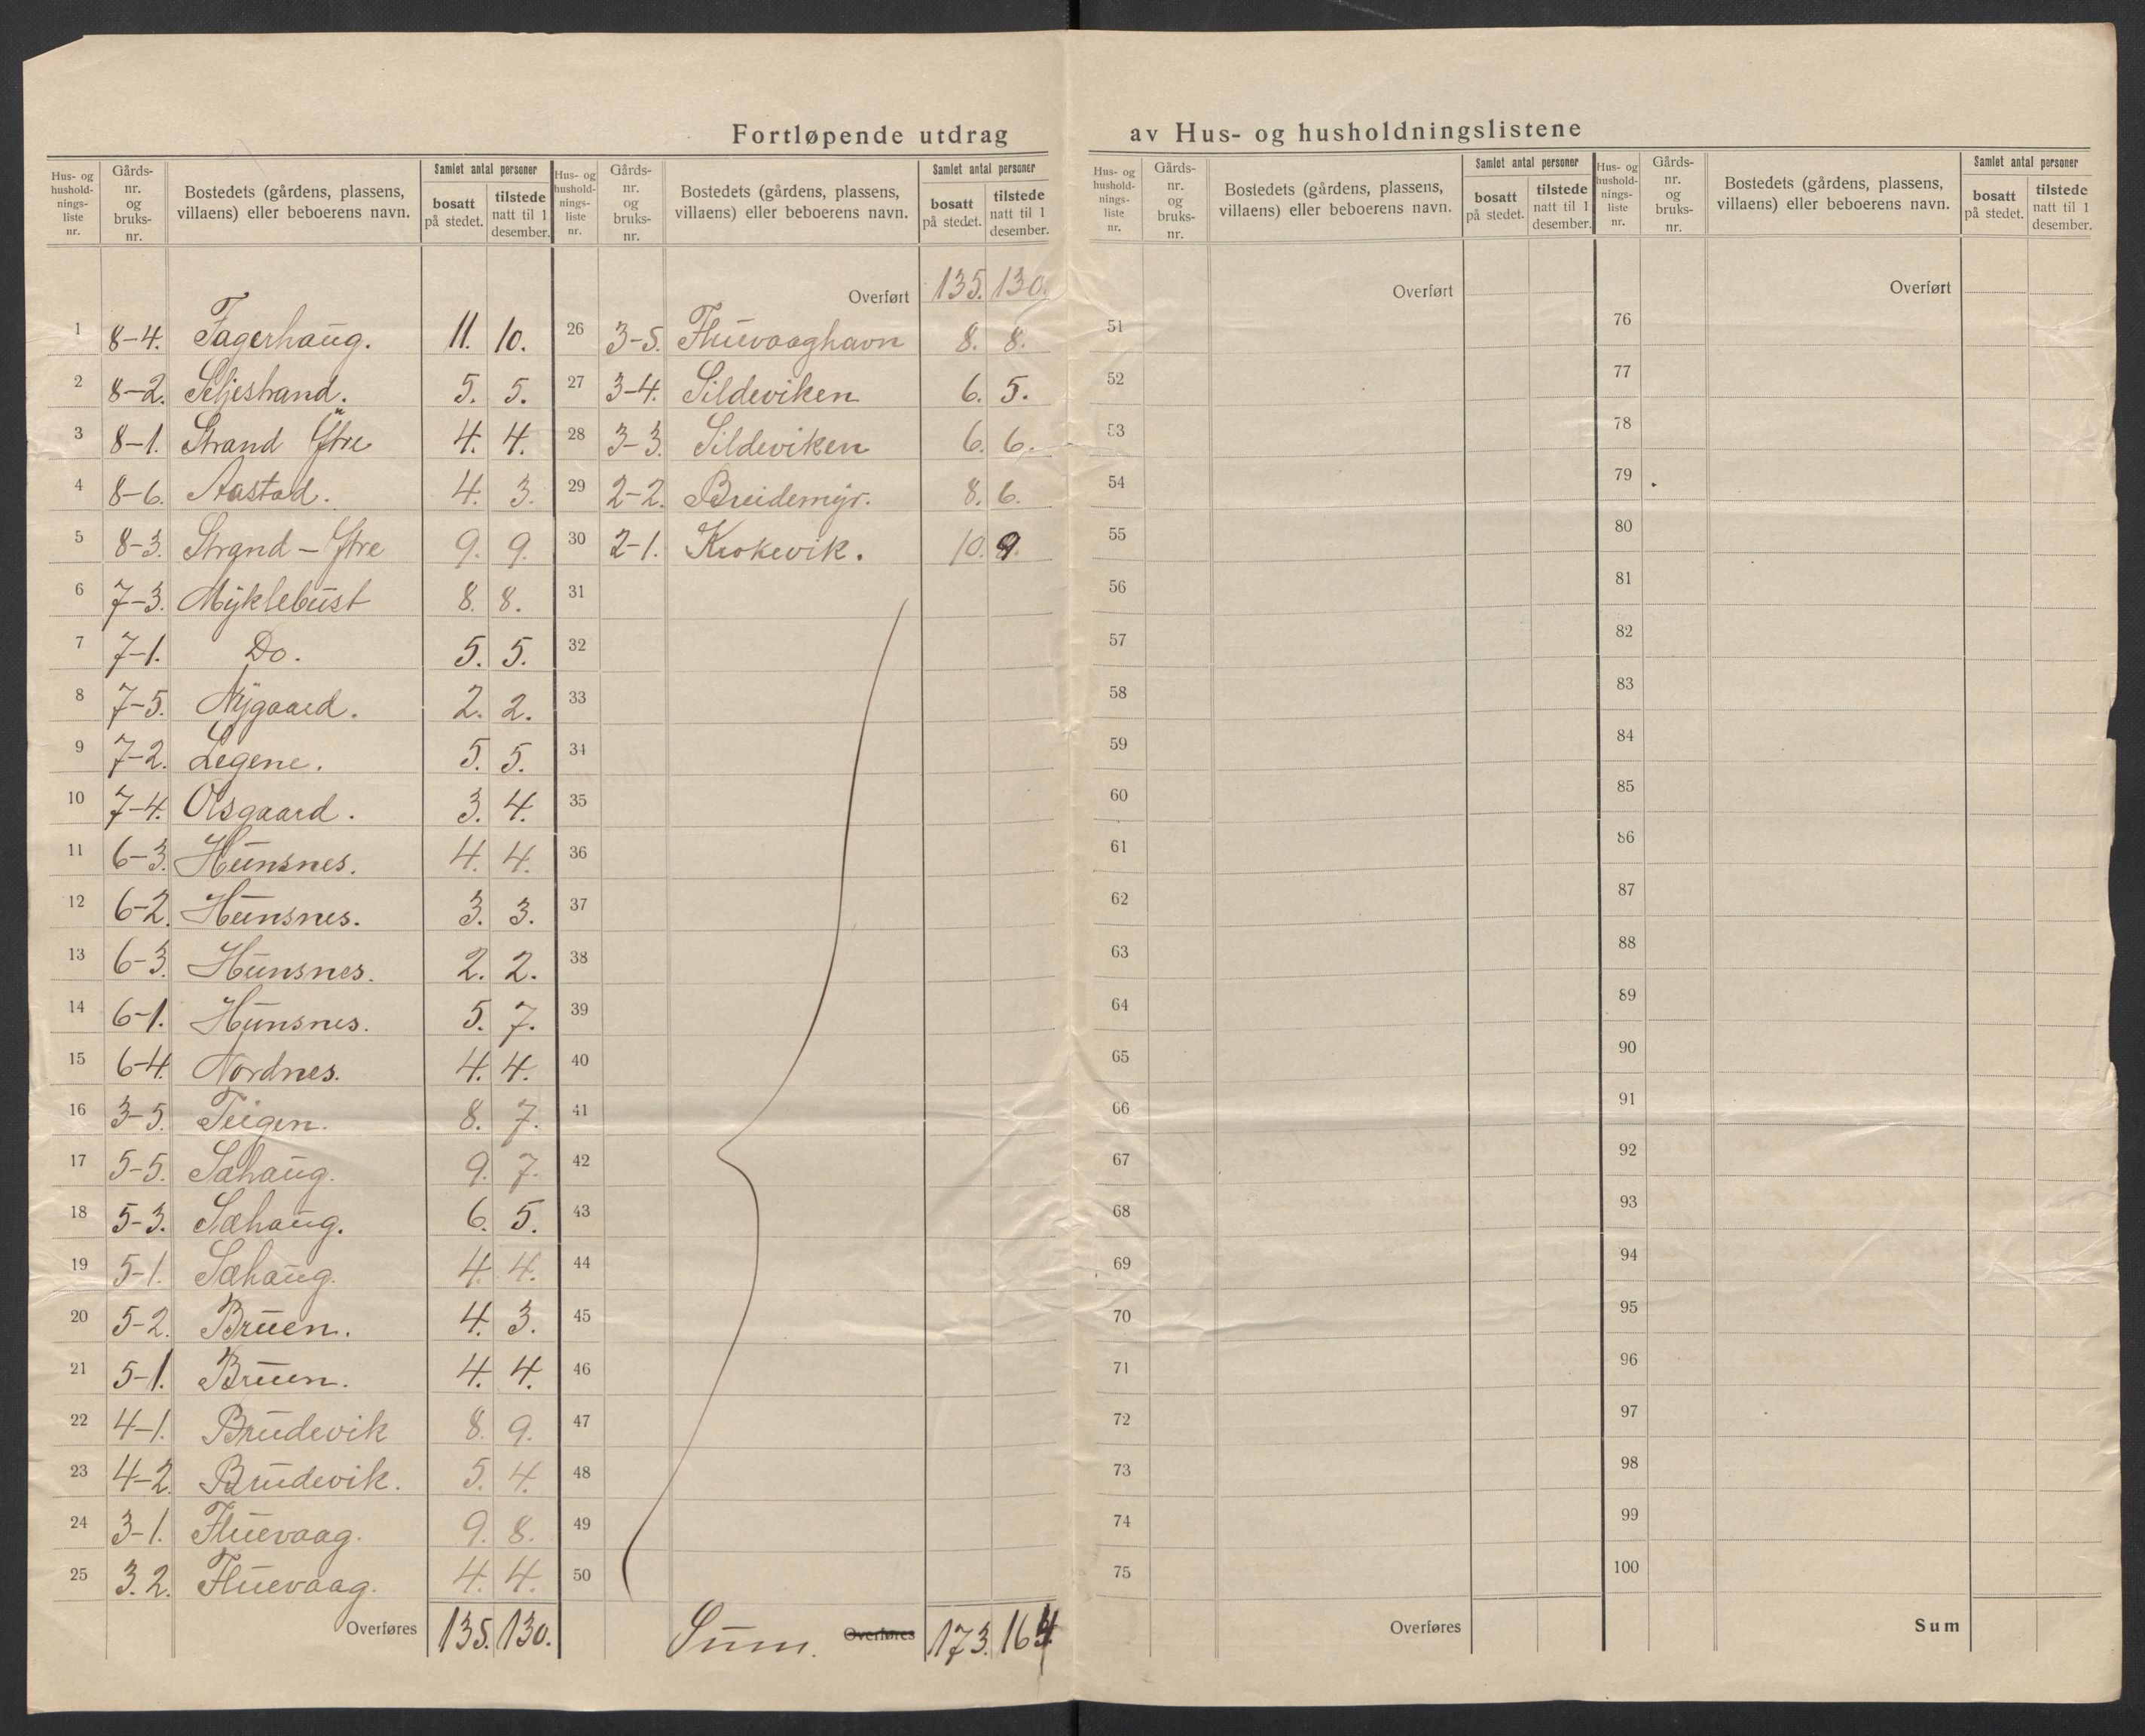 Fortløpende utdrag av Hus- og husholdningslistene
Hus- og hushold-nings-liste nr. | Gårds-nr. og bruks-nr. | Bostedets (gårdens, plassens, villaens) eller beboerens navn. | Samlet antal personer | bosatt på stedet. | tilstede natt til 1 desember.
1 8-4. Fagerhaug. 11. 10.
2 8-2. Seljestrand. 5. 5.
3 8-1. Strand Ytre 4. 4.
4 8-6. Aastad. 4. 3.
5 8-3. Strand - Ytre 9. 9.
6 7-3. Myklebust 8. 8.
7 7-1. Do. 5. 5.
8 7-5. Nygaard. 2. 2.
9 7-2. Legene. 5. 5.
10 7-4. Olsgaard. 3. 4.
11 6-3. Hunsnes. 4. 4.
12 6-2. Hunsnes. 3. 3.
13 6-3. Hunsnes. 2. 2.
14 6-1. Hunsnes. 5. 7.
15 6-4. Nordnes. 4. 4.
16 3-5. Teigen. 8. 7.
17 5-5. Sæhaug. 9. 7.
18 5-3. Sæhaug. 6. 5.
19 5-1. Sæhaug. 4. 4.
20 5-2. Bruen. 4. 3.
21 5-1. Bruen. 4. 4.
22 4-1. Brudevik 8. 9.
23 4-2. Brudevik. 5. 4.
24 3-1. Fluevaag. 9. 8.
25 3.2. Fluevaag. 4. 4.
Overføres 135. 130.
Hus- og hushold-nings-liste nr. | Gårds-nr. og bruks-nr. | Bostedets (gårdens, plassens, villaens) eller beboerens navn. | Samlet antal personer | bosatt på stedet. | tilstede natt til 1 desember.
Overført 135. 130.
26 3-5. Fluevaaghavn 8. 8.
27 3-4. Sildeviken 6. 5.
28 3-3. Sildeviken 6. 6.
29 2-2. Breidemyr. 8. 6.
30 2-1. Krokevik. 10. 9.
31
32
33
34
35
36
37
38
39
40
41
42
43
44
45
46
47
48
49
50
Sum. Overføres 173. 164.
Hus- og hushold-nings-liste nr. | Gårds-nr. og bruks-nr. | Bostedets (gårdens, plassens, villaens) eller beboerens navn. | Samlet antal personer | bosatt på stedet. | tilstede natt til 1 desember.
Overført
51
52
53
54
55
56
57
58
59
60
61
62
63
64
65
66
67
68
69
70
71
72
73
74
75
Overføres
Hus- og hushold-nings-liste nr. | Gårds-nr. og bruks-nr. | Bostedets (gårdens, plassens, villaens) eller beboerens navn. | Samlet antal personer | bosatt på stedet. | tilstede natt til 1 desember.
Overført
76
77
78
79
80
81
82
83
84
85
86
87
88
89
90
91
92
93
94
95
96
97
98
99
100
Sum